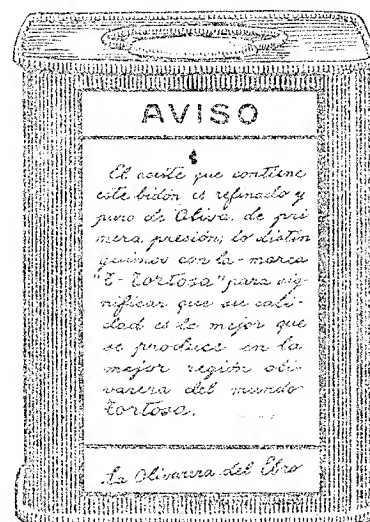 AVISO
El aceite que contiene
este bidón es refinado y
puro de Oliva, de pri
mera presión; lo distin
guimos con la marca
"E-Tortosa" para sig-
nificar que su cali-
dad es la mejor que
se produce en la
mejor región oli-
varera del mundo
Tortosa.
La Olivarera del Ebro